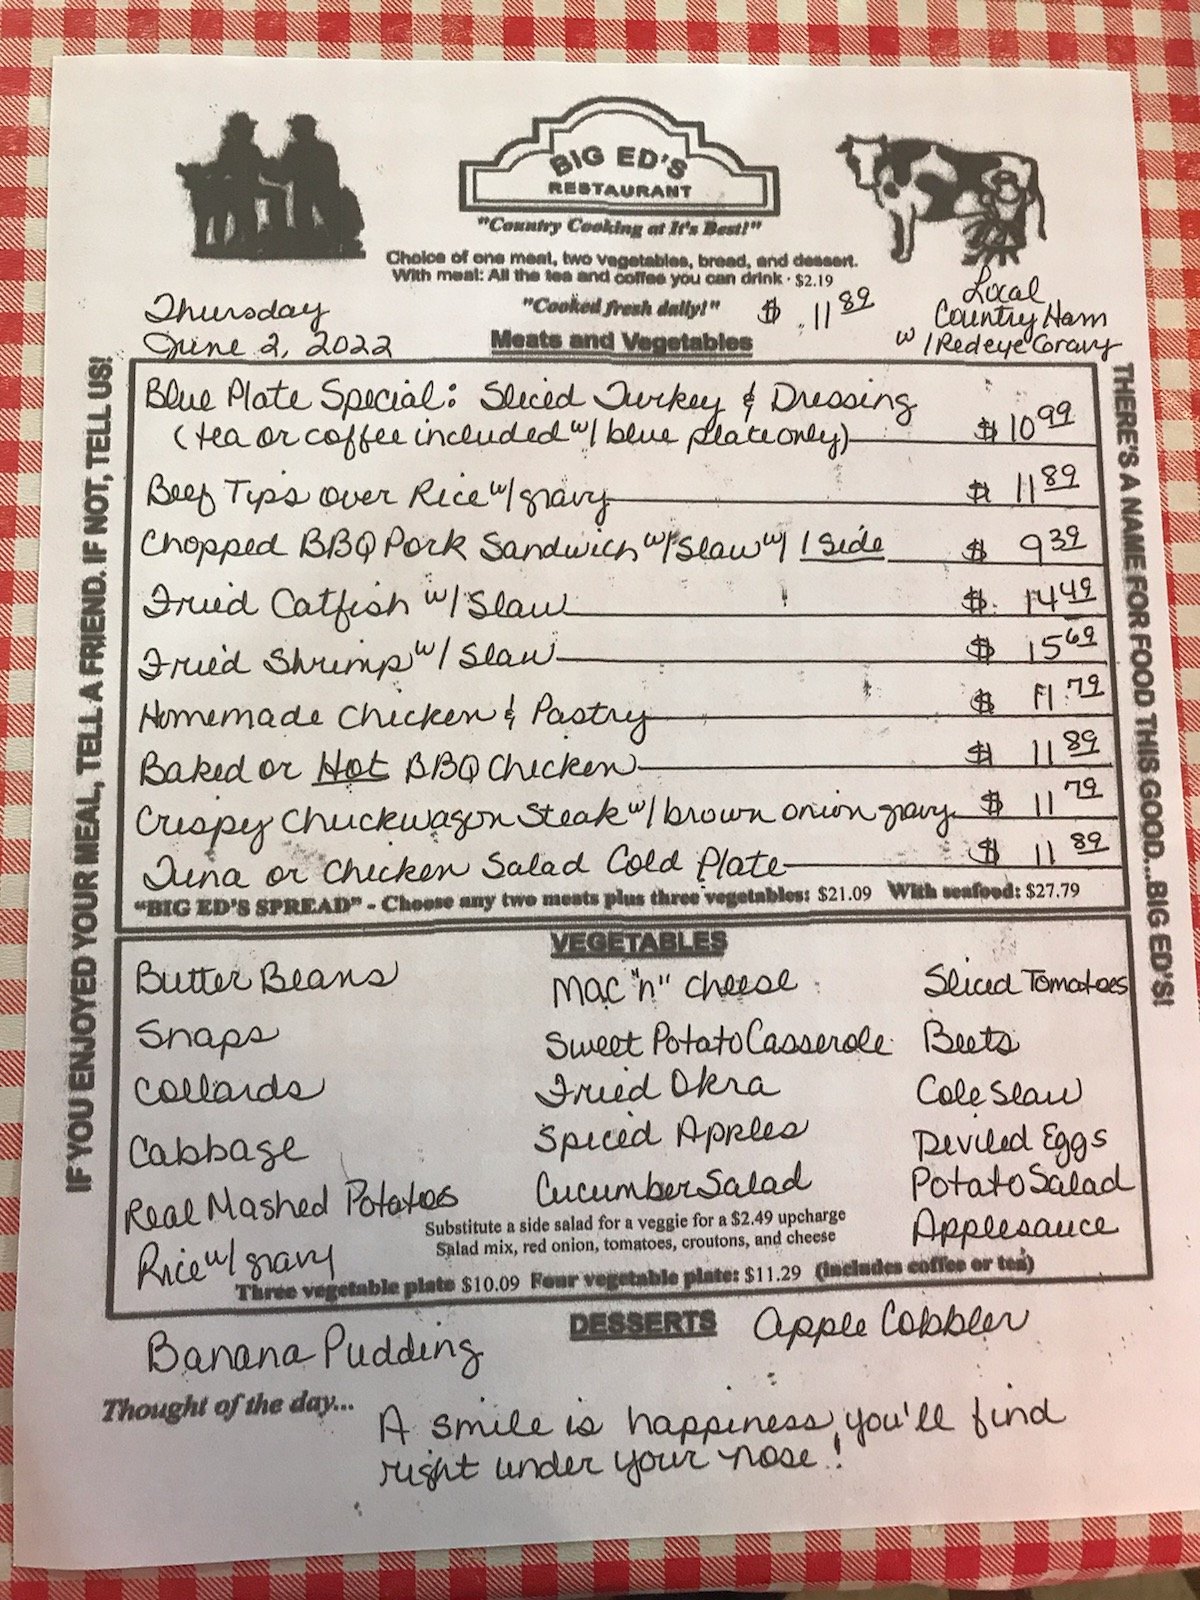 BIG ED'S
RESTAURANT
"Country Cooking at It's Best!"
Choice of one meat, two vegetables, bread, and dessert.
With meal: All the tea and coffee you can drink · $2.19
"Cooked fresh daily!" $ 11 89
Local
Country Ham
w/ Redeye Gravy
Thursday
June 2, 2022
Meats and Vegetables
IF YOU ENJOYED YOUR MEAL, TELL A FRIEND. IF NOT, TELL US!
THERE'S A NAME FOR FOOD THIS GOOD...BIG ED'S!
Blue Plate Special: Sliced Turkey & Dressing
(tea or coffee included w/ blue plate only) $10 99
Beef Tips over Rice w/ gravy $ 11 89
Chopped BBQ Pork Sandwich w/ Slaw w/ 1 Side $ 9 39
Fried Catfish w/ Slaw $ 14 49
Fried Shrimp w/ Slaw $ 15 69
Homemade Chicken & Pastry $ 11 79
Baked or Hot BBQ Chicken $ 11 89
Crispy Chuckwagon Steak w/ brown onion gravy $ 11 79
Tuna or Chicken Salad Cold Plate $ 11 89
"BIG ED'S SPREAD" - Choose any two meats plus three vegetables: $21.09 With seafood: $27.79
VEGETABLES
Butter Beans
Snaps
Collards
Cabbage
Real Mashed Potatoes
Rice w/ gravy
Mac "n" Cheese
Sweet Potato Casserole
Fried Okra
Spiced Apples
Cucumber Salad
Sliced Tomatoes
Beets
Cole Slaw
Deviled Eggs
Potato Salad
Applesauce
Substitute a side salad for a veggie for a $2.49 upcharge
Salad mix, red onion, tomatoes, croutons, and cheese
Three vegetable plate $10.09 Four vegetable plate: $11.29 (includes coffee or tea)
DESSERTS
Banana Pudding
Apple Cobbler
Thought of the day...
A smile is happiness you'll find
right under your nose!